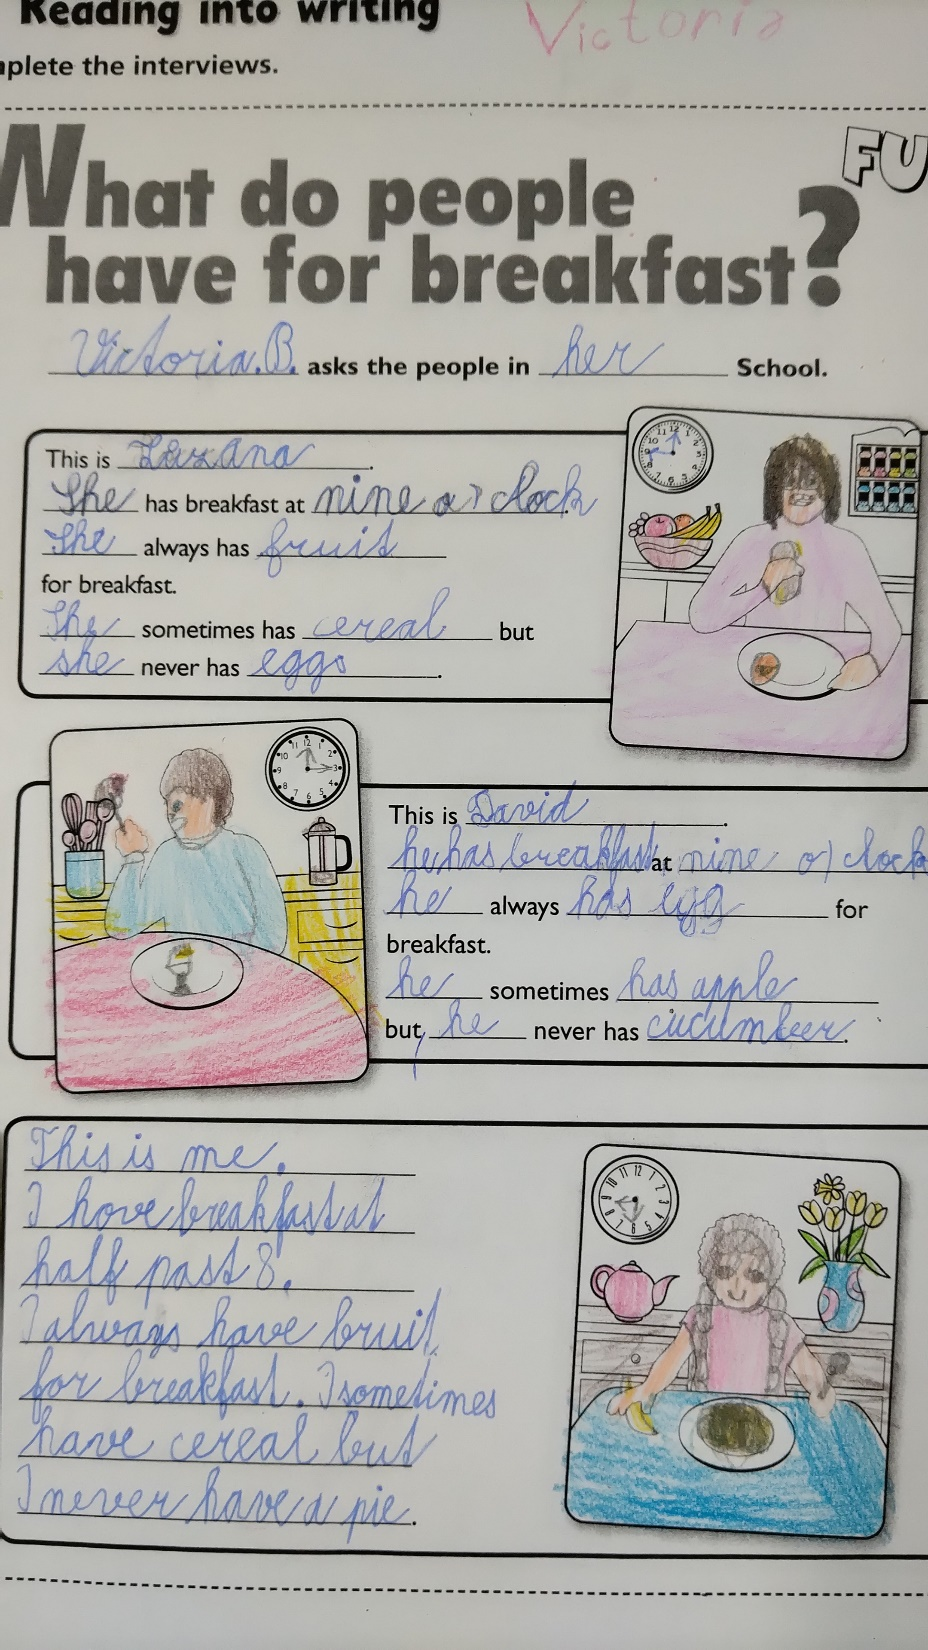 Reading into writing
Victoria
mplete the interviews.
FU
What do people
have for breakfast?
Victoria.B. asks the people in her School.
This is .
She has breakfast at nine o'clock
She always has fruit
for breakfast.
She sometimes has cereal but
she never has eggs.
This is David.
he has breakfast at nine o'clock
he always has egg for
breakfast.
he sometimes has apple
but, he never has cucumber.
This is me.
I have breakfast at
half past 8.
I always have bruit
for breakfast. I sometimes
have cereal but
I never have a pie.